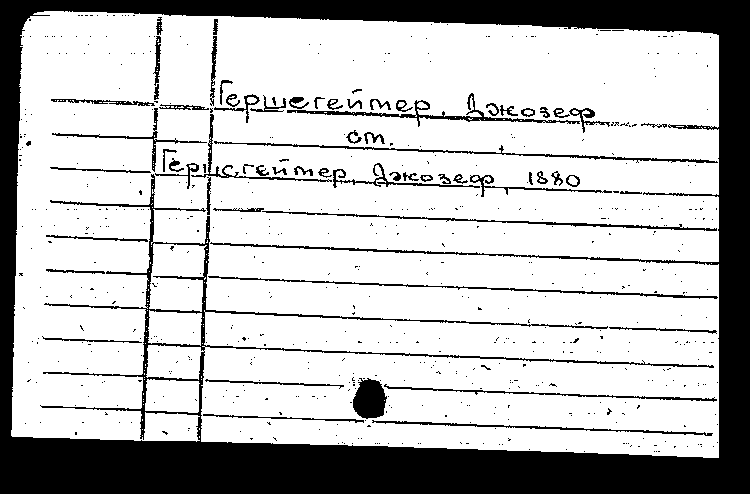 Гершегеймер, Джозеф
см.
Гершегеймер, Джозеф, 1880